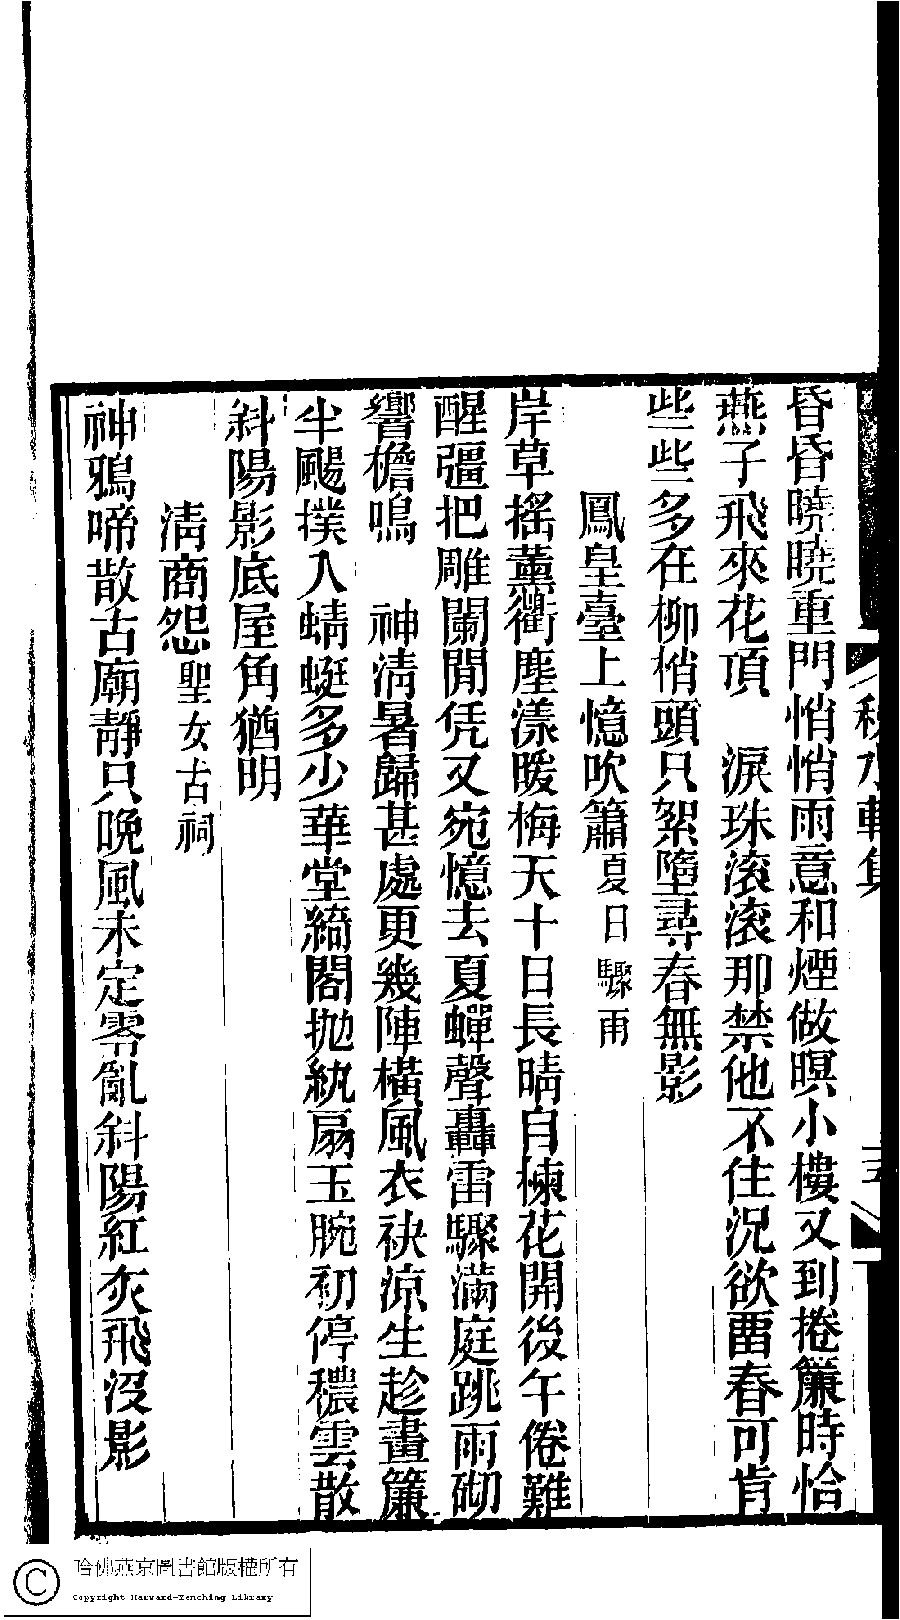 昏昏曉曉重門悄悄雨意和煙做暝小樓又到捲簾時恰
燕子飛來花頂　淚珠滚滚那禁他不住況欲畱春可肯
些些多在柳梢頭只絮墮尋春無影
鳳皇臺上憶吹簫夏日驟雨
岸草搖薰衢塵漾暖梅天十日長晴自楝花開後午倦難
醒彊把雕闌閒凭又宛憶去夏蟬聲轟雷驟滿庭跳雨砌
響檐鳴　神清暑歸甚處更幾陣橫風衣袂涼生趁畫簾
半颺撲入蜻蜓多少華堂綺閣拋紈扇玉腕初停穠雲散
斜陽影底屋角猶明
清商怨聖女古祠
神鴉啼散古廟靜只晚風未定零亂斜陽紅灰飛沒影
秋水軒集
哈佛燕京圖書館版權所有
Copyright Harvard-Yenching Library